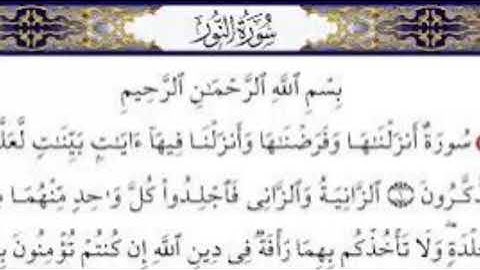 سُورَةُ النُّورِ
بِسْمِ ٱللَّهِ ٱلرَّحْمَٰنِ ٱلرَّحِيمِ
سُورَةٌ أَنزَلْنَٰهَا وَفَرَضْنَٰهَا وَأَنزَلْنَا فِيهَآ ءَايَٰتٍۭ بَيِّنَٰتٍ لَّعَلَّ
ذَكَّرُونَ ۝١ ٱلزَّانِيَةُ وَٱلزَّانِى فَٱجْلِدُوا۟ كُلَّ وَٰحِدٍ مِّنْهُمَا
جَلْدَةٍ ۖ وَلَا تَأْخُذْكُم بِهِمَا رَأْفَةٌ فِى دِينِ ٱللَّهِ إِن كُنتُمْ تُؤْمِنُونَ